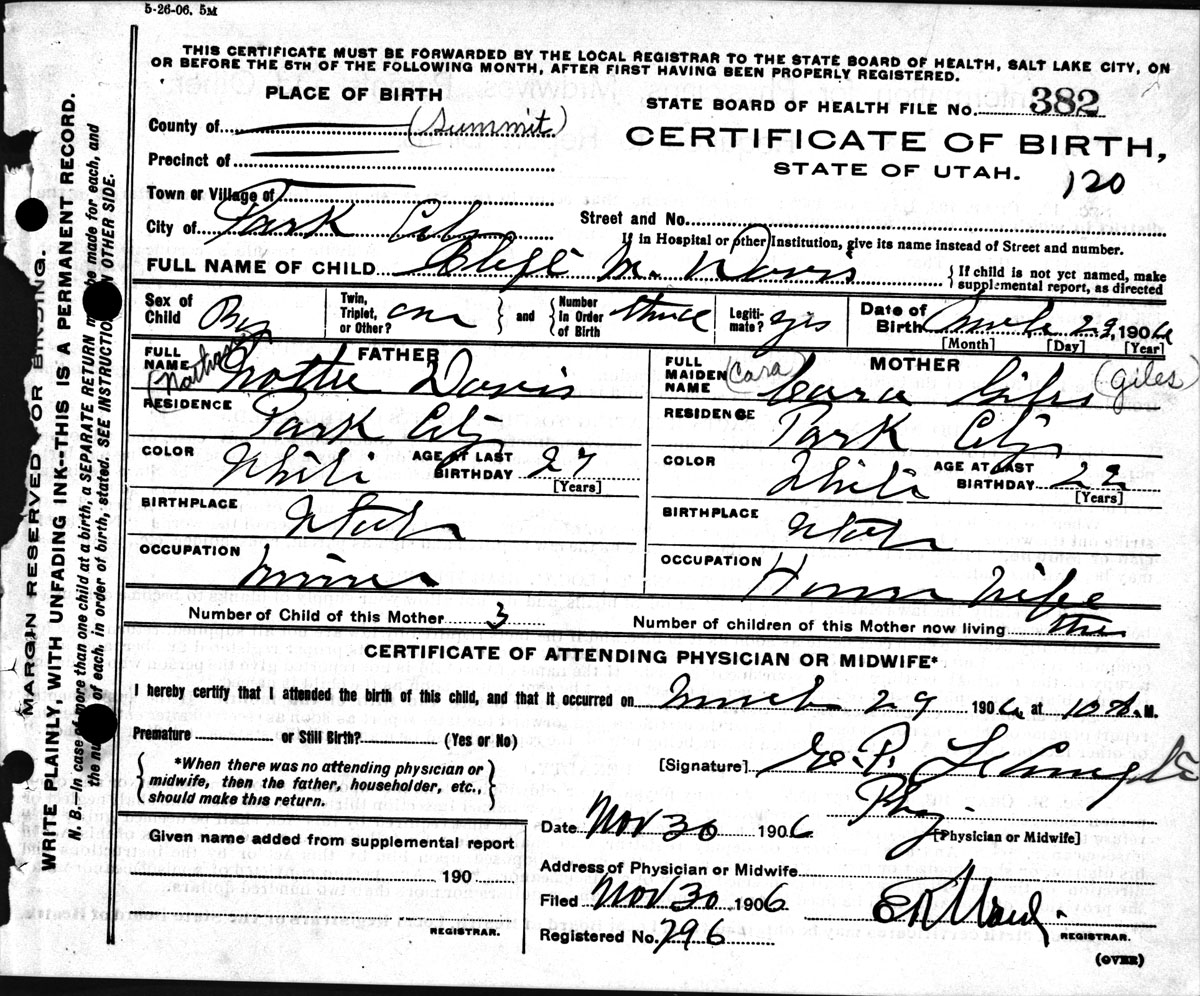 5-26-06. 5M
THIS CERTIFICATE MUST BE FORWARDED BY THE LOCAL REGISTRAR TO THE STATE BOARD OF HEALTH, SALT LAKE CITY, ON
OR BEFORE THE 5TH OF THE FOLLOWING MONTH, AFTER FIRST HAVING BEEN PROPERLY REGISTERED.
PLACE OF BIRTH
STATE BOARD OF HEALTH FILE No. 382
County of (Summit)
CERTIFICATE OF BIRTH,
Precinct of
STATE OF UTAH.
120
Town or Village of
City of Park City
Street and No.
If in Hospital or other Institution, give its name instead of Street and number.
FULL NAME OF CHILD M. Davis
If child is not yet named, make
supplemental report, as directed
Sex of Child Boy
Twin, Triplet, or Other? one and Number In Order of Birth three
Legiti- mate? yes
Date of Birth March 29, 1906
[Month] [Day] [Year]
FULL NAME FATHER
(Nathan) Nottie Davis
FULL MAIDEN NAME MOTHER
(Cara) Cara Giles (Giles)
RESIDENCE Park City
RESIDENCE Park City
COLOR White AGE AT LAST BIRTHDAY 27 [Years]
COLOR White AGE AT LAST BIRTHDAY 22 [Years]
BIRTHPLACE Utah
BIRTHPLACE Utah
OCCUPATION Miner
OCCUPATION House Wife
Number of Child of this Mother 3
Number of children of this Mother now living three
CERTIFICATE OF ATTENDING PHYSICIAN OR MIDWIFE*
I hereby certify that I attended the birth of this child, and that it occurred on March 29 1906, at 10 A. M.
Premature or Still Birth? (Yes or No)
*When there was no attending physician or
midwife, then the father, householder, etc.,
should make this return.
[Signature] E. P.
Phy
[Physician or Midwife]
Date Nov 30 1906
Given name added from supplemental report
190
REGISTRAR.
Address of Physician or Midwife
Filed Nov 30 1906
E R Ward.
REGISTRAR.
Registered No. 796
(OVER)
MARGIN RESERVED FOR BINDING.
WRITE PLAINLY, WITH UNFADING INK--THIS IS A PERMANENT RECORD.
N. B.—In case of more than one child at a birth, a SEPARATE RETURN must be made for each, and
the number of each, in order of birth, stated. SEE INSTRUCTIONS ON OTHER SIDE.